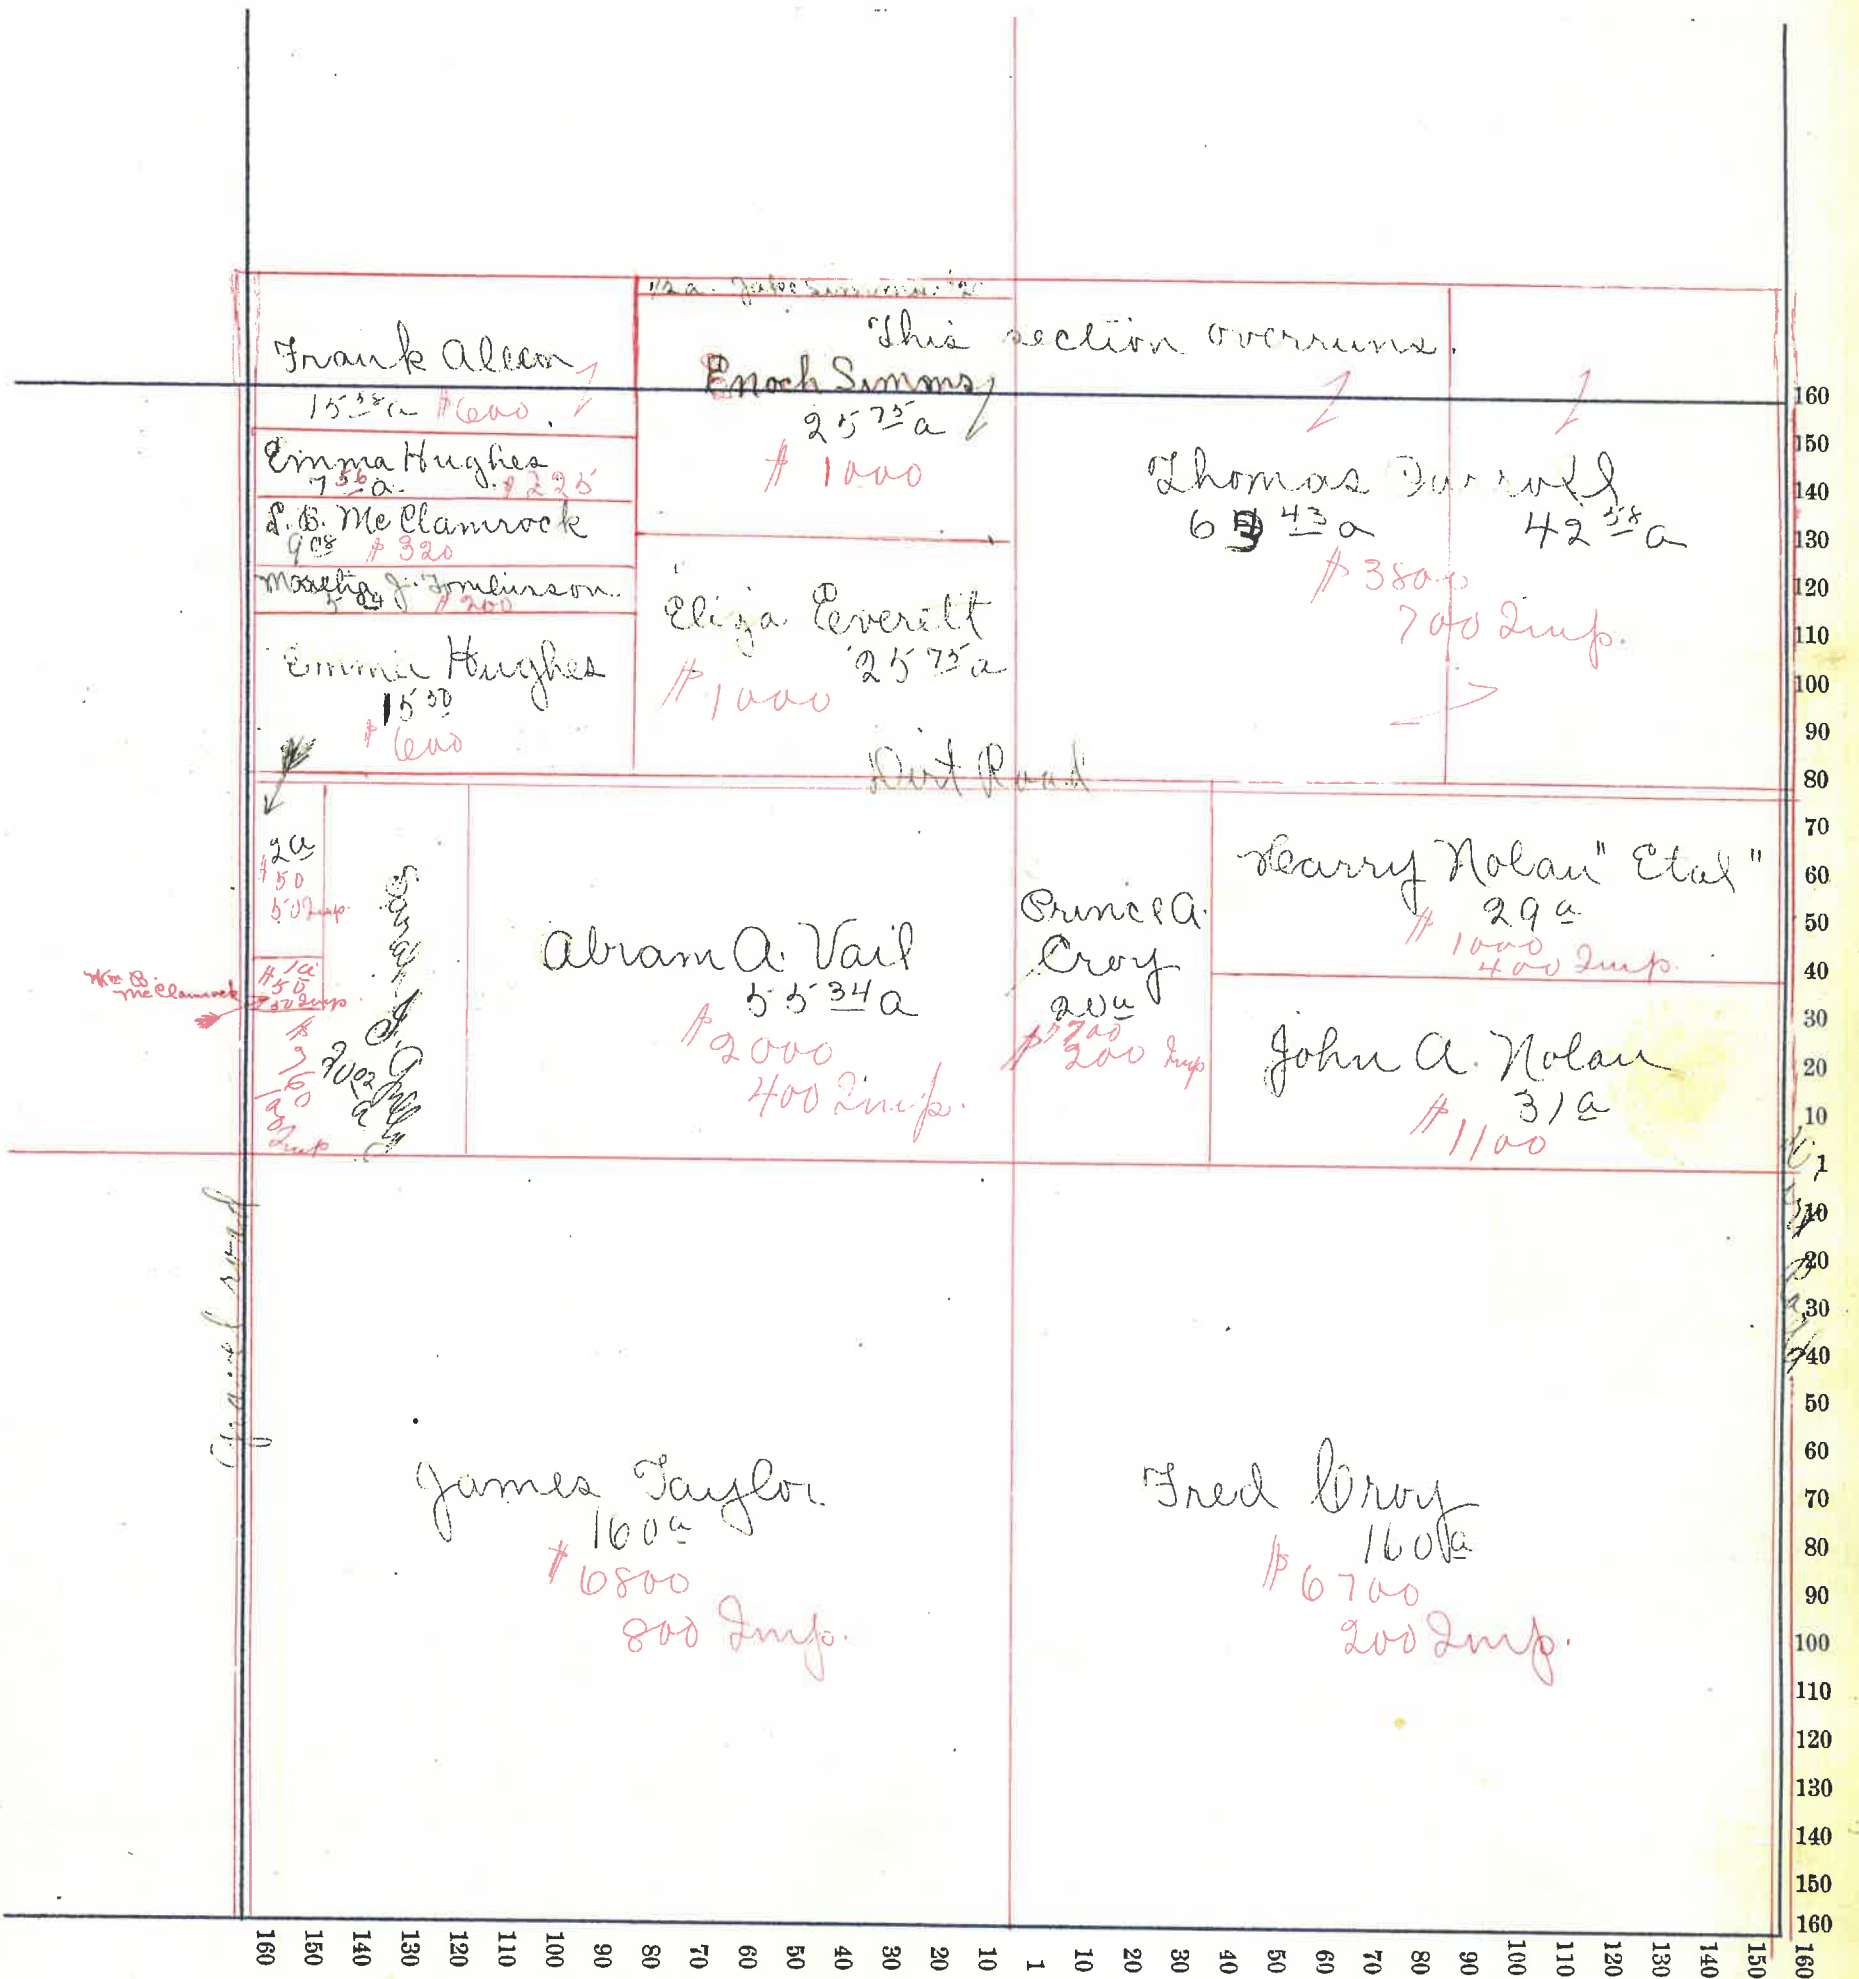 This section overruns.
Frank Aleem
15 58 a $600
Emma Hughes
7 56 a. $225
L. B. McClamrock
9 08 $320
J. Tomlinson
5 04 $200
Emma Hughes
15 50
$600
1/2 a. Jake Simms
Enoch Simms
25 75 a
$1000
Eliza Everitt
25 75 a
$1000
Thomas
43 a
42 58 a
$3800
700 Imp.
Dirt Road
2a
$50
50 Imp.
1a
$50
50 Imp
Wm B.
McClamrock
$760
Imp
Sarah J.
20 02 a
Abram A. Vail
55 34 a
$2000
400 Imp.
Prince A.
Croy
20a
$700
200 Imp
Harry Nolan "Etal"
29 a
$1000
400 Imp.
John A. Nolan
31 a
$1100
Gravel road
James Taylor
160 a
$6800
800 Imp.
Fred Croy
160 a
$6700
200 Imp.
160
150
140
130
120
110
100
90
80
70
60
50
40
30
20
10
1
10
20
30
40
50
60
70
80
90
100
110
120
130
140
150
160
160 150 140 130 120 110 100 90 80 70 60 50 40 30 20 10 1 10 20 30 40 50 60 70 80 90 100 110 120 130 140 150 160